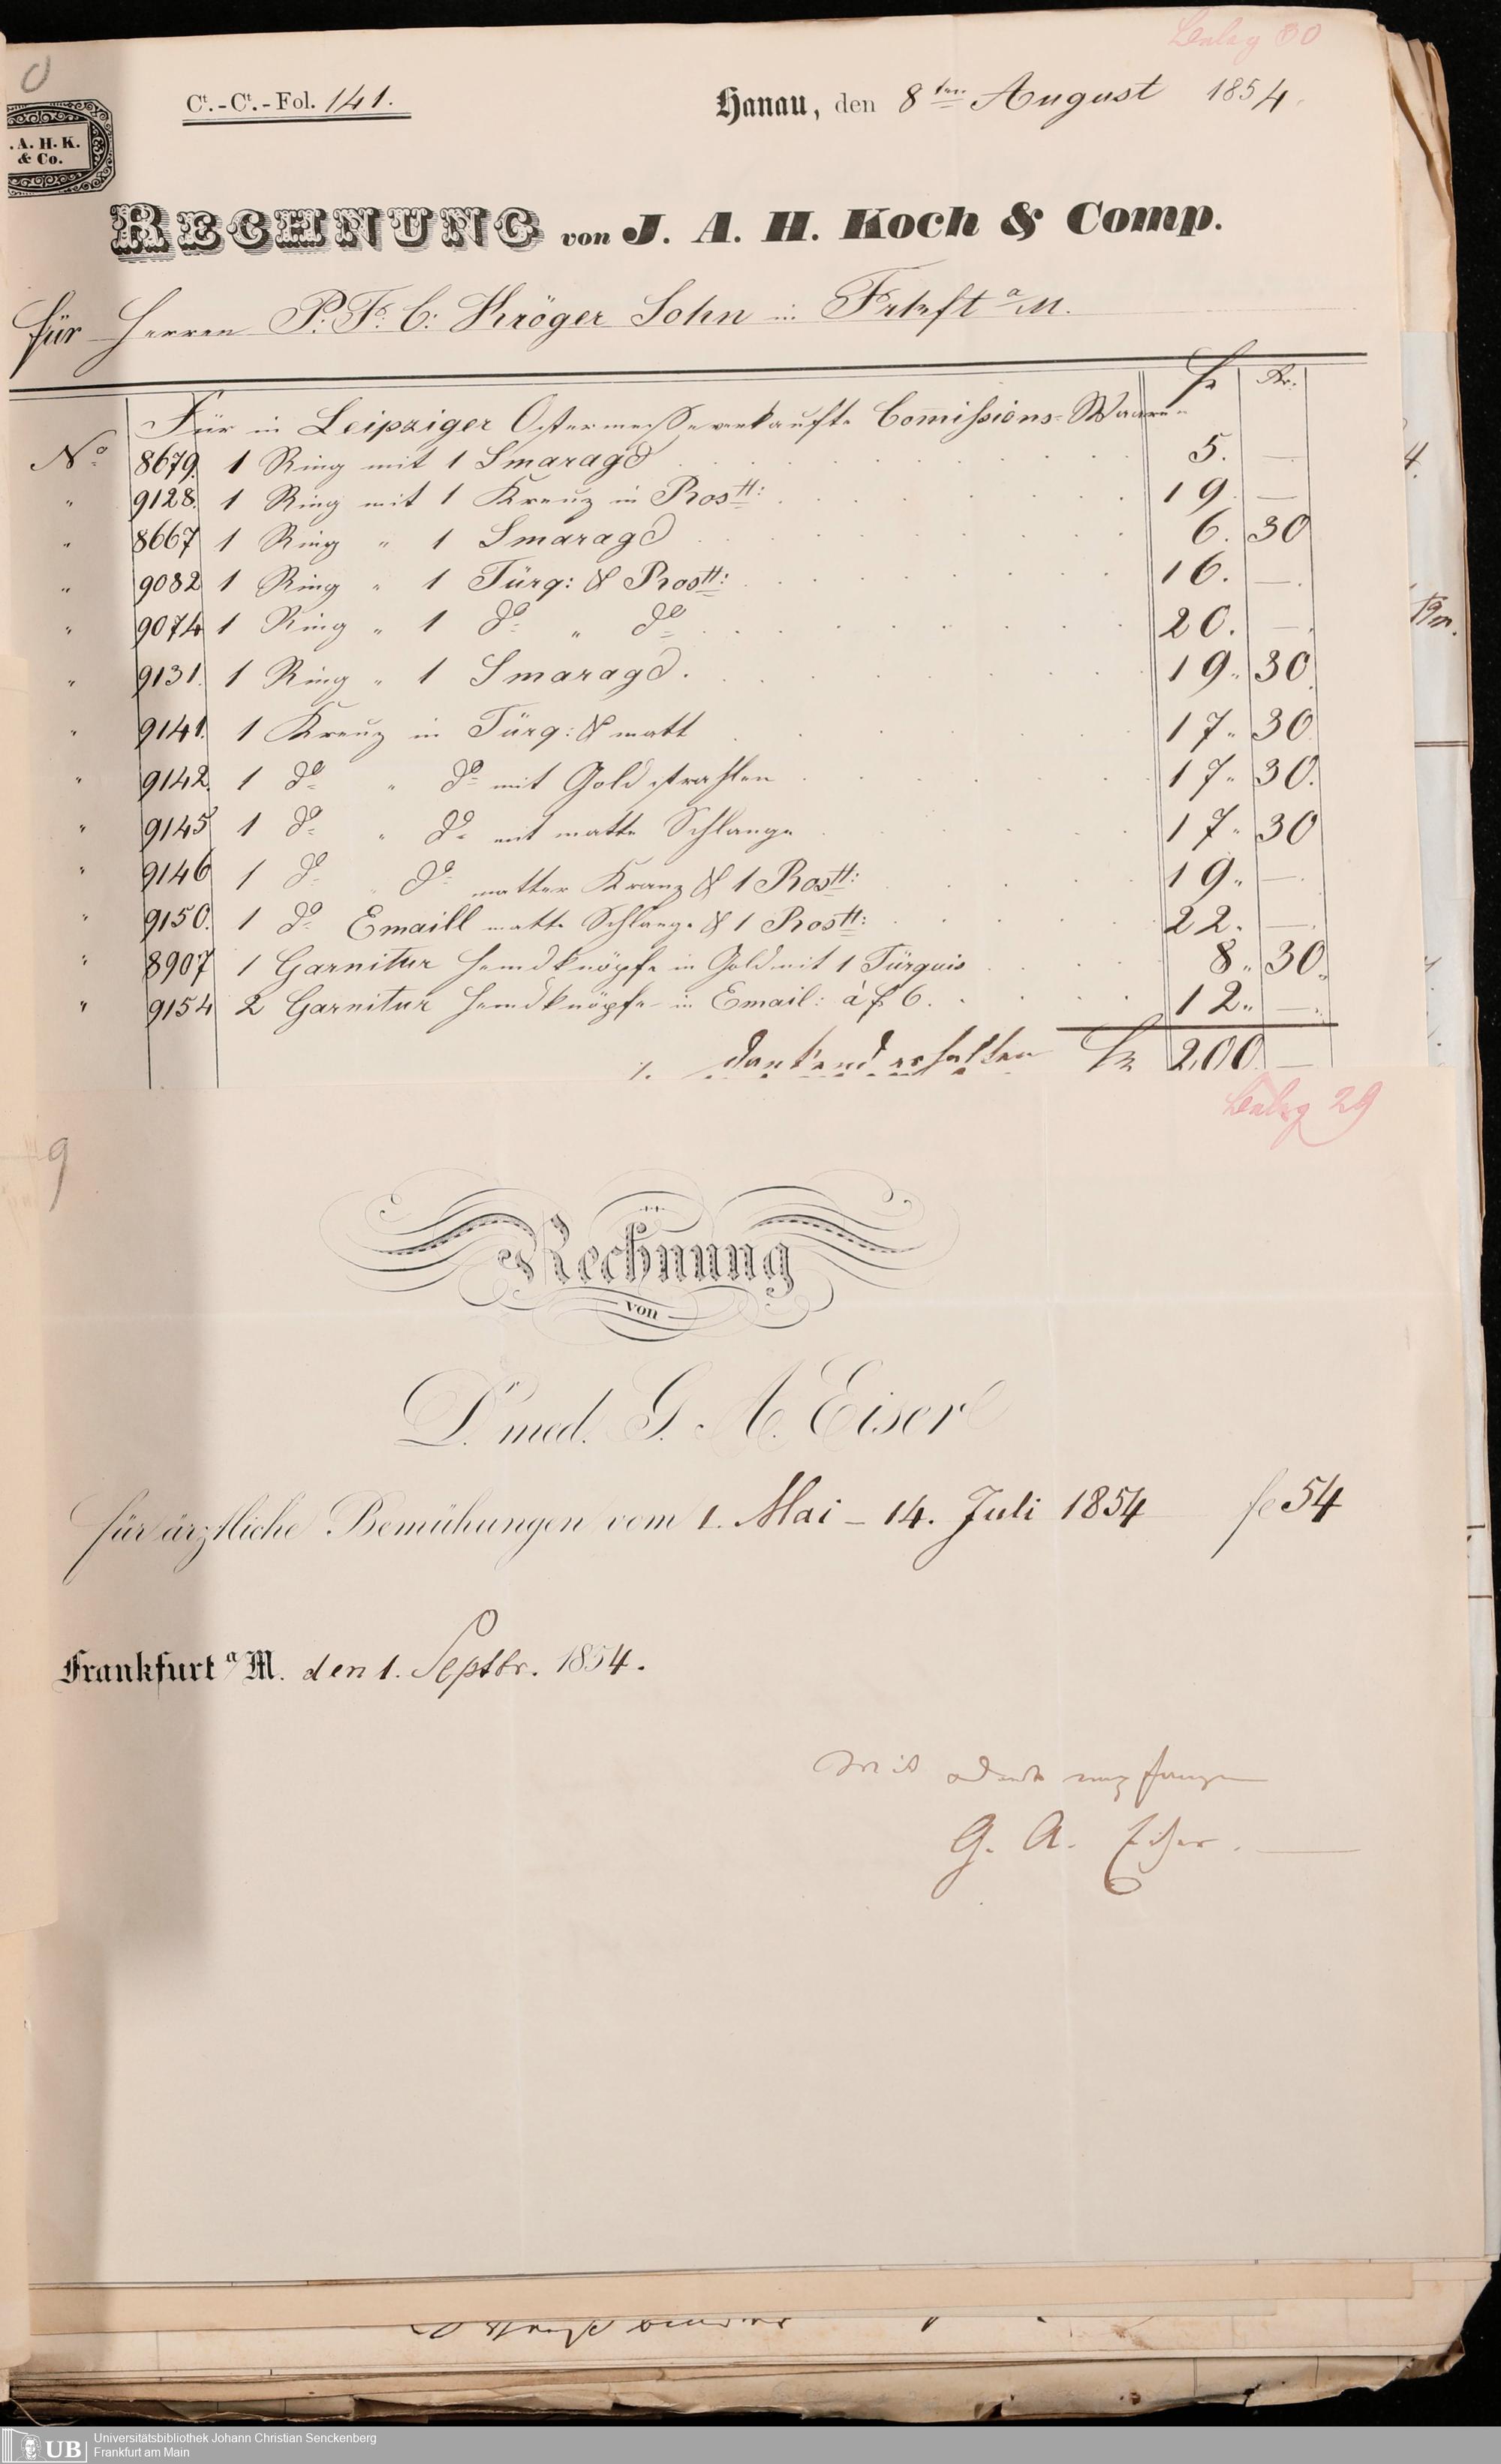 Beleg 30
0
Ct.-Ct.-Fol. 141.
Hanau, den 8ten August 1854.
. A. H. K.
& Co.
RECHNUNG von J. A. H. Koch & Comp.
für Herren P. Fr. C: Kröger Sohn in Frkft a/M.
fr Kr.
Für in Leipziger Ostermesse verkaufte Comissions-Waaren
No 8679. 1 Ring mit 1 Smaragd 5. —
" 9128. 1 Ring mit 1 Kreuz in Rostt: 19. —
" 8667 1 Ring " 1 Smaragd 6. 30
" 9082 1 Ring " 1 Türq: & Rostt: 16. —
" 9074 1 Ring " 1 do " do 20. —
" 9131. 1 Ring " 1 Smaragd. 19. 30
" 9141. 1 Kreuz in Türq: & matt 17. 30
" 9142. 1 do " do mit Goldstrahlen 17. 30.
" 9145 1 do " do mit matte Schlange 17. 30
" 9146 1 do " do matter Kranz & 1 Rostt: 19. —
" 9150. 1 do Emaill matte Schlange & 1 Rostt: 22. —
" 8907 1 Garnitur Hemdknöpfe in Gold mit 1 Türquis 8. 30.
" 9154 2 Garnitur Hemdknöpfe in Email: à f 6. 12. —
dankend erhalten fr 200. —
Beleg 29
9
Rechnung
von
Dr. med. G. A. Eiser
für ärztliche Bemühungen vom 1. Mai – 14. Juli 1854 fl 54
Frankfurt a/M. den 1. Septbr. 1854.
Mit Dank empfangen
G. A. Eiser.
UB
Universitätsbibliothek Johann Christian Senckenberg
Frankfurt am Main